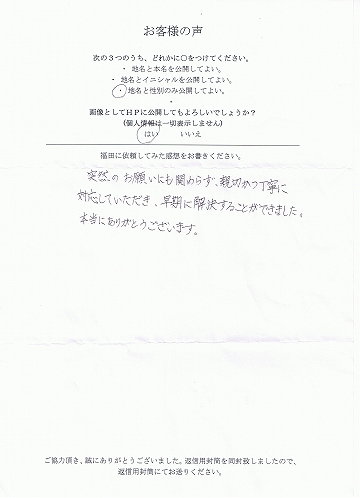 お客様の声
次の３つのうち、どれかに〇をつけてください。
・地名と本名を公開してよい。
・地名とイニシャルを公開してよい。
・地名と性別のみ公開してよい。
・
画像としてＨＰに公開してもよろしいでしょうか？
(個人情報は一切表示しません)
はい　いいえ
福田に依頼してみた感想をお書きください。
突然のお願いにも関わらず、親切かつ丁寧に
対応していただき、早期に解決することができました。
本当にありがとうございます。
ご協力頂き、誠にありがとうございました。返信用封筒を同封致しましたので、
返信用封筒にてお送りください。